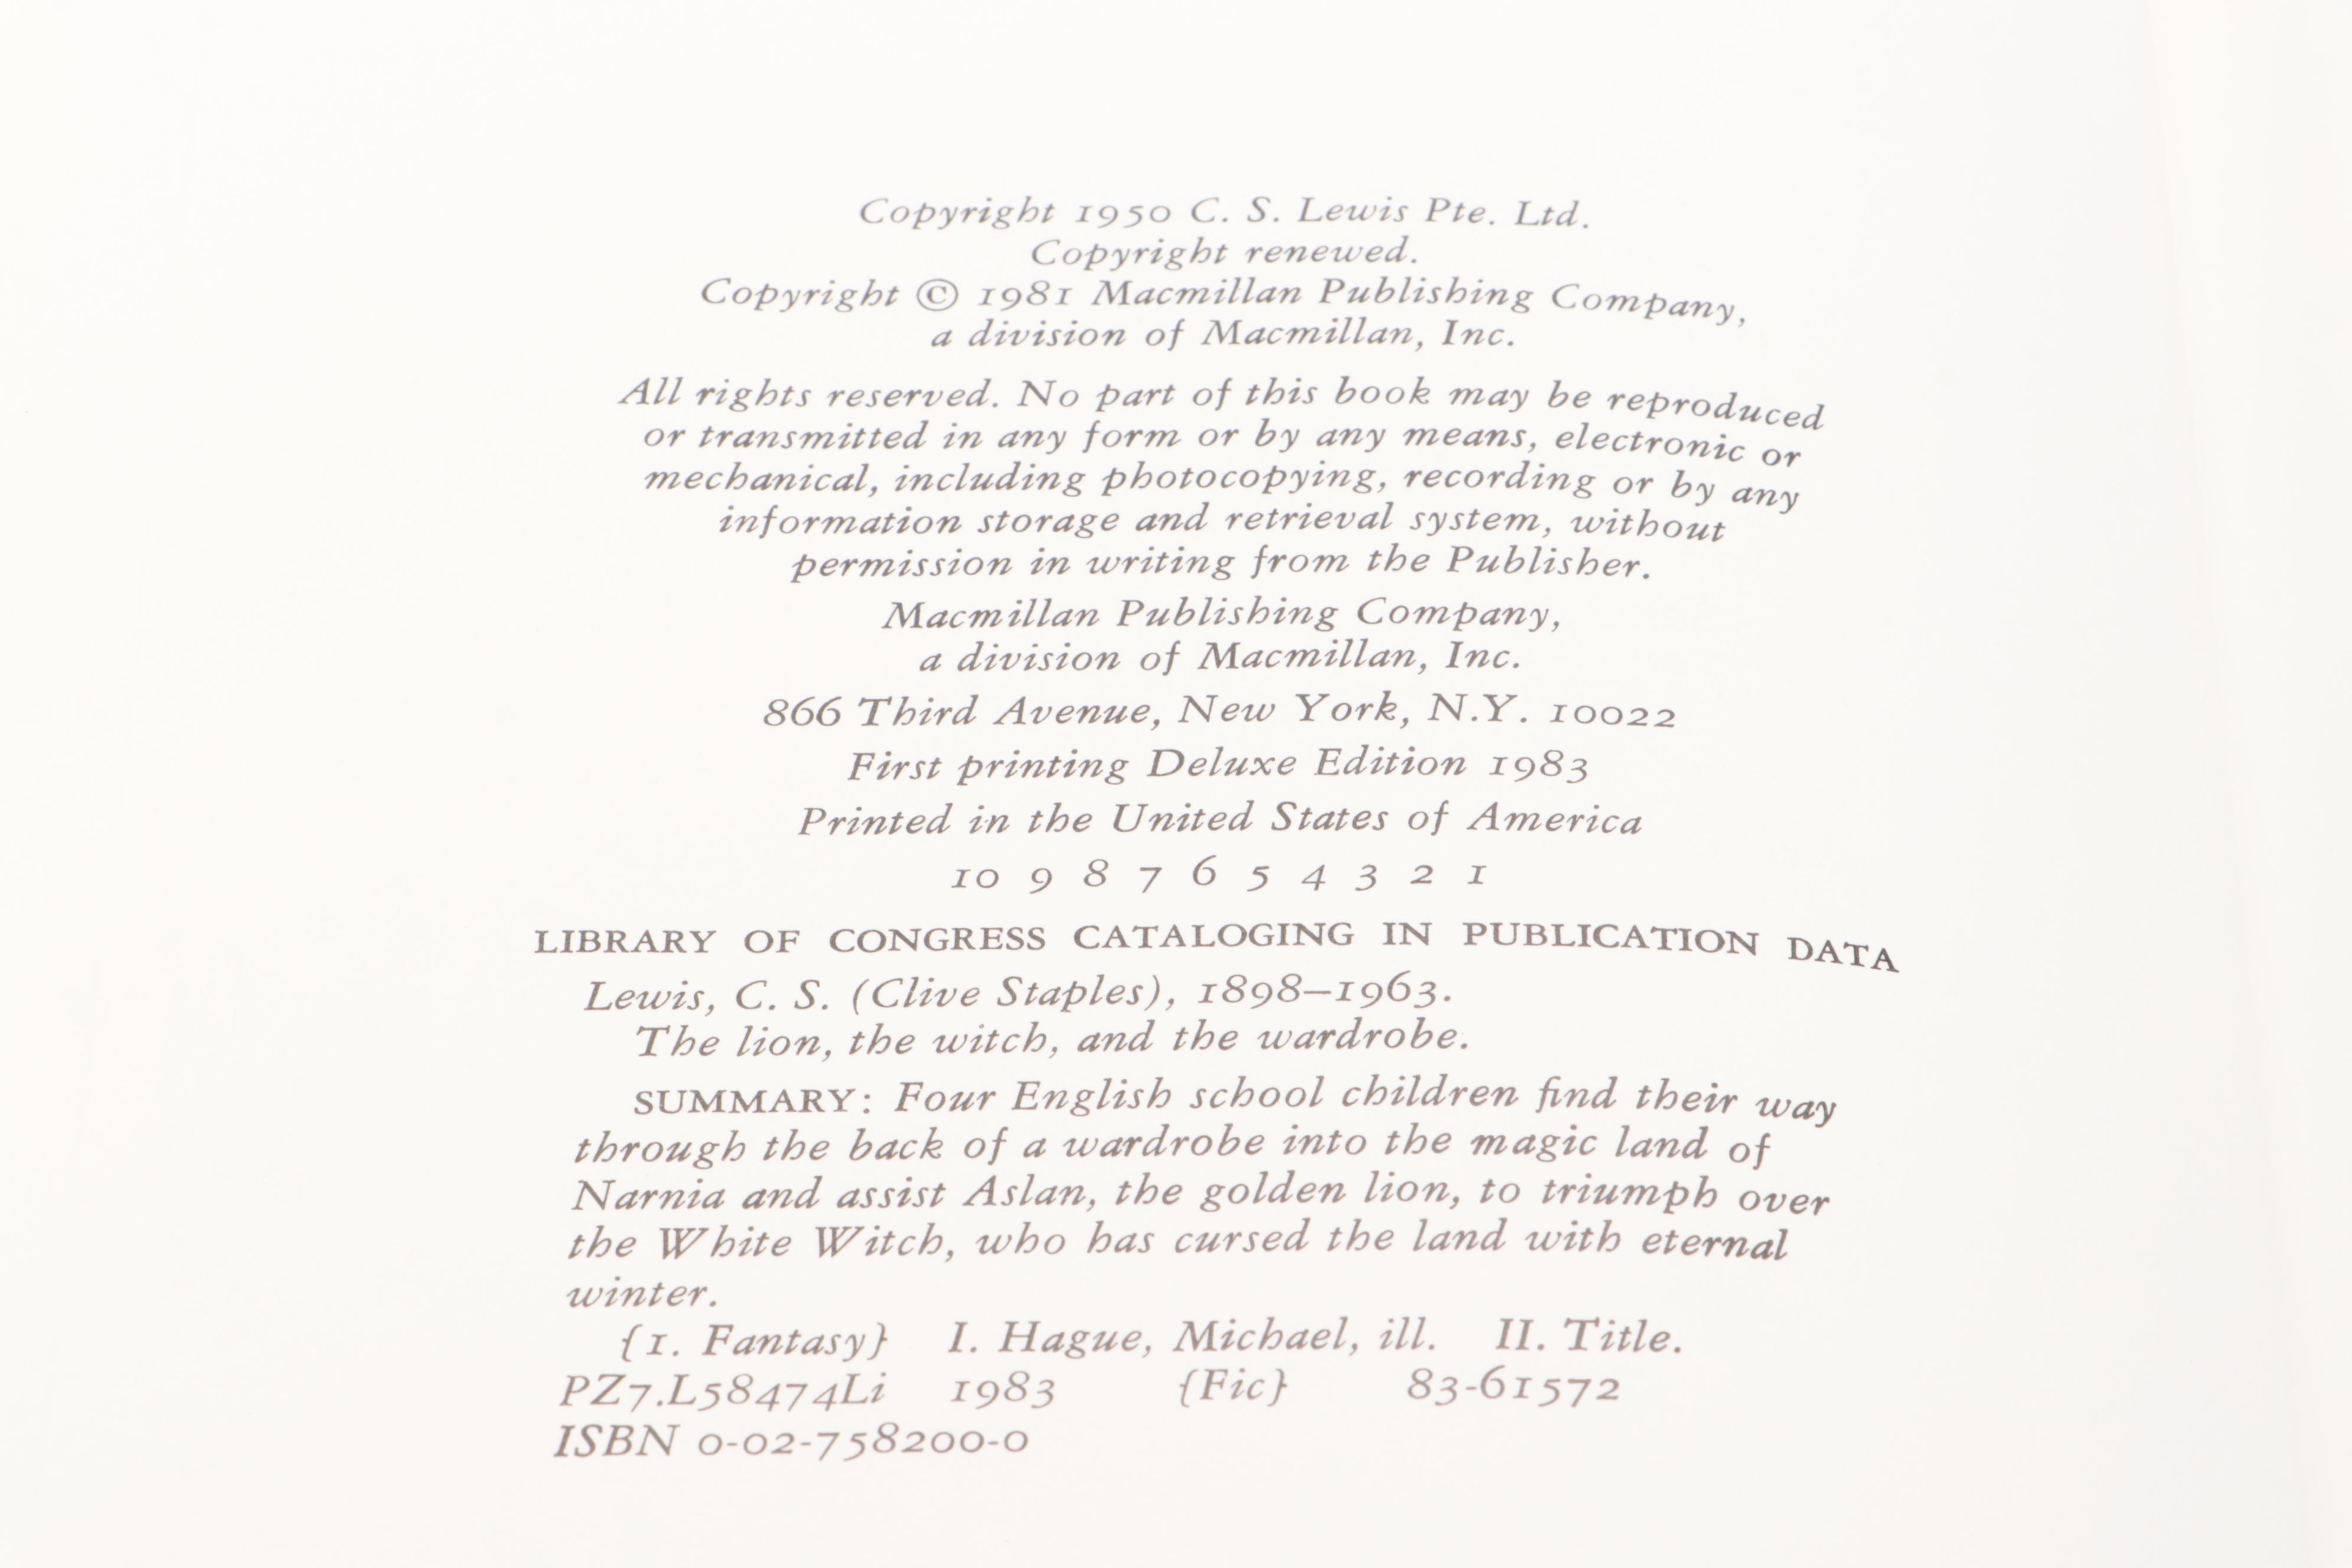 Copyright 1950 C. S. Lewis Pte. Ltd.
Copyright renewed.
Copyright © 1981 Macmillan Publishing Company,
a division of Macmillan, Inc.
All rights reserved. No part of this book may be reproduced
or transmitted in any form or by any means, electronic or
mechanical, including photocopying, recording or by any
information storage and retrieval system, without
permission in writing from the Publisher.
Macmillan Publishing Company,
a division of Macmillan, Inc.
866 Third Avenue, New York, N.Y. 10022
First printing Deluxe Edition 1983
Printed in the United States of America
10 9 8 7 6 5 4 3 2 1
LIBRARY OF CONGRESS CATALOGING IN PUBLICATION DATA
Lewis, C. S. (Clive Staples), 1898–1963.
The lion, the witch, and the wardrobe.
SUMMARY: Four English school children find their way
through the back of a wardrobe into the magic land of
Narnia and assist Aslan, the golden lion, to triumph over
the White Witch, who has cursed the land with eternal
winter.
{1. Fantasy} I. Hague, Michael, ill. II. Title.
PZ7.L58474Li 1983 {Fic} 83-61572
ISBN 0-02-758200-0